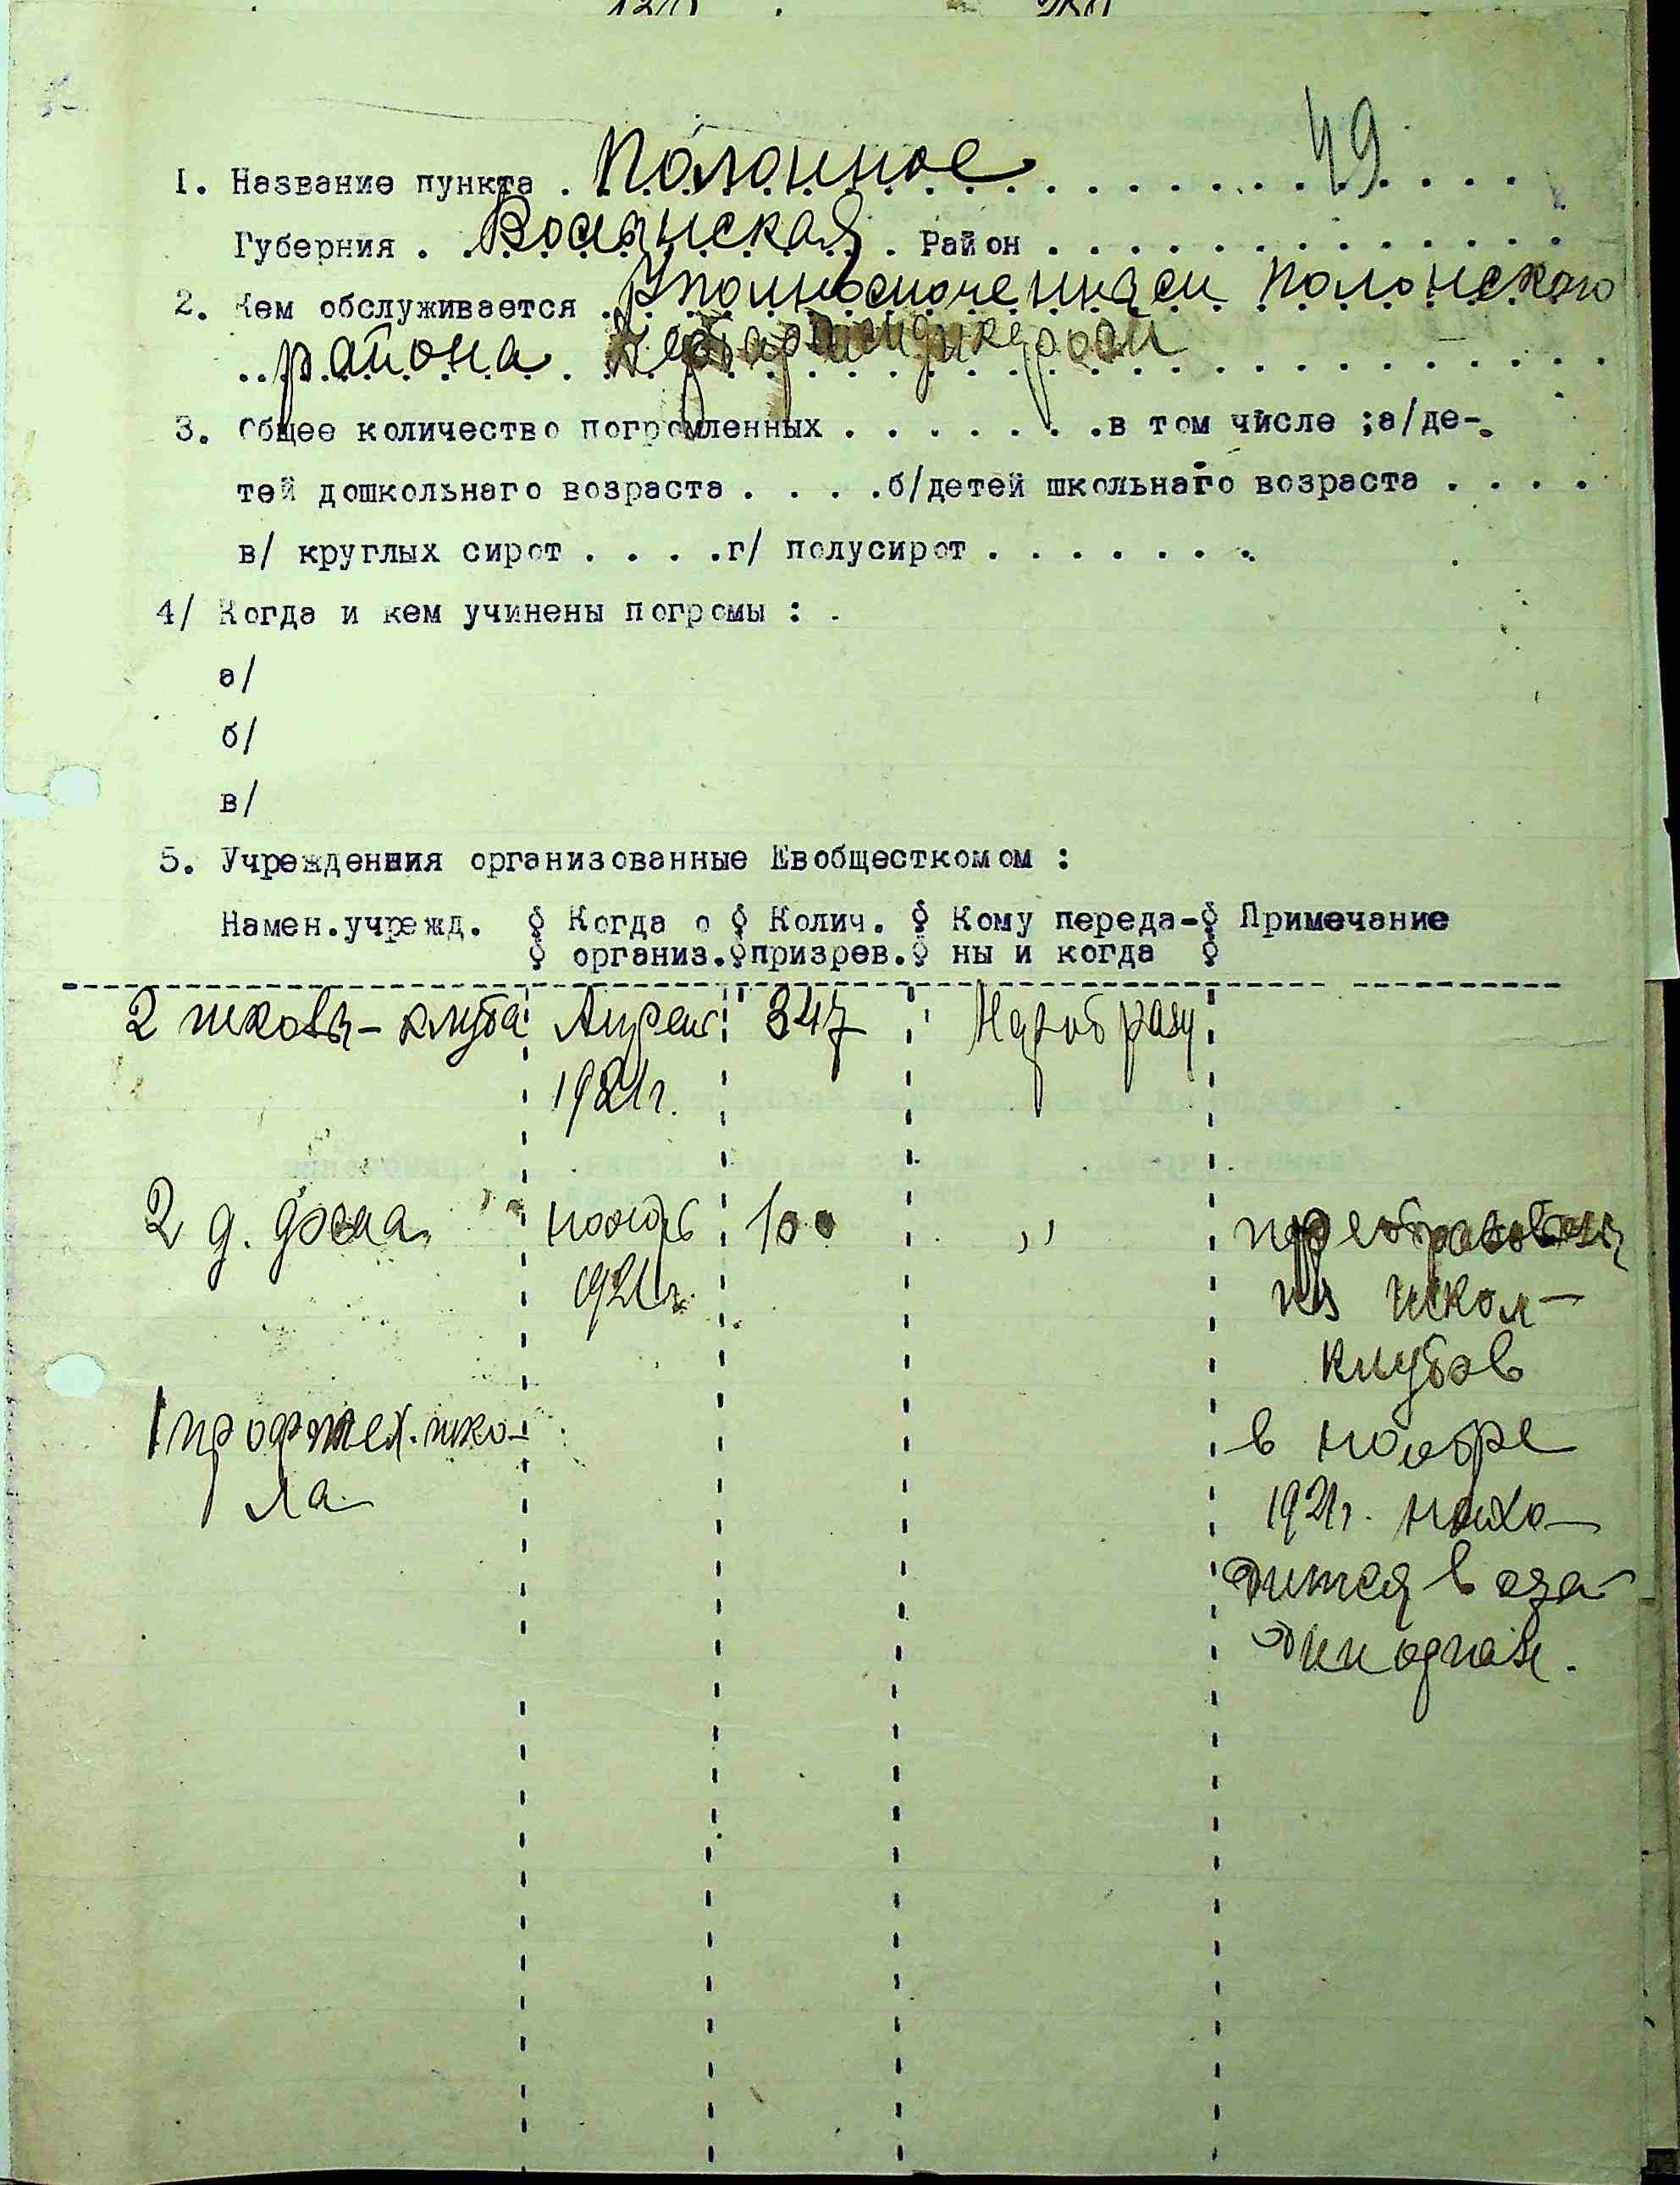 49
1. Название пункта . Полонное
Губерния . Волынская . Район . . . . . . . . . . . . . .
2. Кем обслуживается . Уполномоченным Полонского
района
3. Общее количество погромленных . . . . . . . .в том числе ;а/де-
тей дошкольнаго возраста . . . .б/детей школьнаго возраста . . . .
в/ круглых сирот . . . .г/ полусирот . . . . . . . .
4/ Когда и кем учинены погромы : .
а/
б/
в/
5. Учрежденния организованные Евобщесткомом :
Намен.учрежд. Когда о Колич. Кому переда- Примечание
организ. призрев. ны и когда
2 школы-клуба Апрель 347 Наробразу
1921г.
2 д. дома ноябрь 100 ,, преобразованы
1921г. из школ-
клубов
1 профтех. шко- в ноябре
ла 1921г. нахо-
дится в ста-